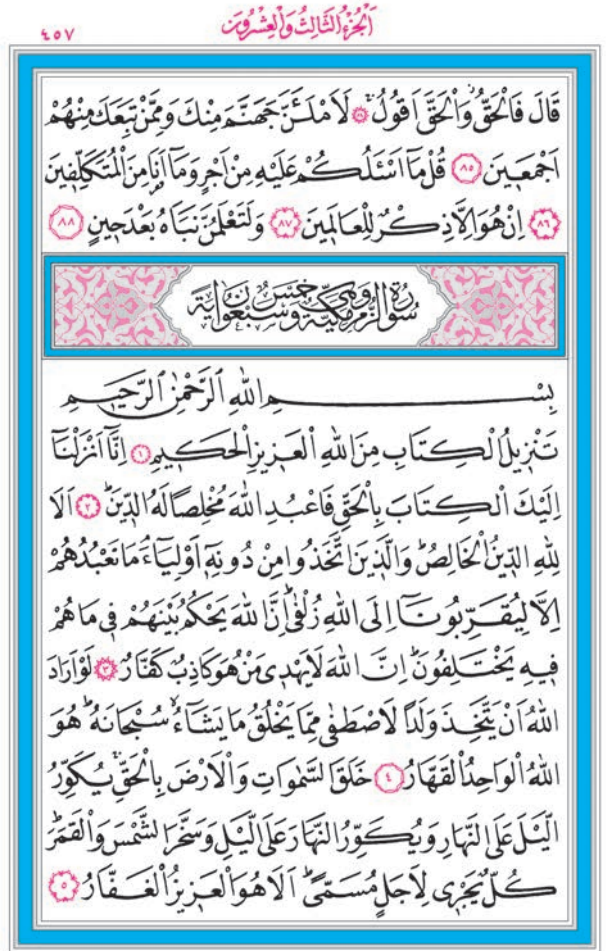 اَلْجُزْءُ الثَّالِثُ وَالْعِشْرُونَ
٤٥٧
قَالَ فَالْحَقُّۘ وَالْحَقَّ اَقُولُۚ ﴿٨٤﴾ لَاَمْلَـَٔنَّ جَهَنَّمَ مِنْكَ وَمِمَّنْ تَبِعَكَ مِنْهُمْ
اَجْمَعٖينَ ﴿٨٥﴾ قُلْ مَٓا اَسْـَٔلُكُمْ عَلَيْهِ مِنْ اَجْرٍ وَمَٓا اَنَا۬ مِنَ الْمُتَكَلِّفٖينَ
﴿٨٦﴾ اِنْ هُوَ اِلَّا ذِكْرٌ لِلْعَالَمٖينَ ﴿٨٧﴾ وَلَتَعْلَمُنَّ نَبَاَهُ بَعْدَ حٖينٍ ﴿٨٨﴾
سُورَةُ الزُّمَرِ مَكِّيَّةٌ وَهِيَ خَمْسٌ وَسَبْعُونَ اٰيَةً
بِسْمِ اللهِ الرَّحْمٰنِ الرَّحٖيمِ
تَنْزٖيلُ الْكِتَابِ مِنَ اللهِ الْعَزٖيزِ الْحَكٖيمِ ﴿١﴾ اِنَّٓا اَنْزَلْنَٓا
اِلَيْكَ الْكِتَابَ بِالْحَقِّ فَاعْبُدِ اللهَ مُخْلِصًا لَهُ الدّٖينَۜ ﴿٢﴾ اَلَا
لِلّٰهِ الدّٖينُ الْخَالِصُۜ وَالَّذٖينَ اتَّخَذُوا مِنْ دُونِهٖٓ اَوْلِيَٓاءَۢ مَا نَعْبُدُهُمْ
اِلَّا لِيُقَرِّبُونَٓا اِلَى اللهِ زُلْفٰىۜ اِنَّ اللهَ يَحْكُمُ بَيْنَهُمْ فٖي مَا هُمْ
فٖيهِ يَخْتَلِفُونَۜ اِنَّ اللهَ لَا يَهْدٖي مَنْ هُوَ كَاذِبٌ كَفَّارٌ ﴿٣﴾ لَوْ اَرَادَ
اللهُ اَنْ يَتَّخِذَ وَلَدًا لَاصْطَفٰى مِمَّا يَخْلُقُ مَا يَشَٓاءُۙ سُبْحَانَهُۜ هُوَ
اللهُ الْوَاحِدُ الْقَهَّارُ ﴿٤﴾ خَلَقَ السَّمٰوَاتِ وَالْاَرْضَ بِالْحَقِّۚ يُكَوِّرُ
الَّيْلَ عَلَى النَّهَارِ وَيُكَوِّرُ النَّهَارَ عَلَى الَّيْلِ وَسَخَّرَ الشَّمْسَ وَالْقَمَرَۜ
كُلٌّ يَجْرٖي لِاَجَلٍ مُسَمًّىۜ اَلَا هُوَ الْعَزٖيزُ الْغَفَّارُ ﴿٥﴾